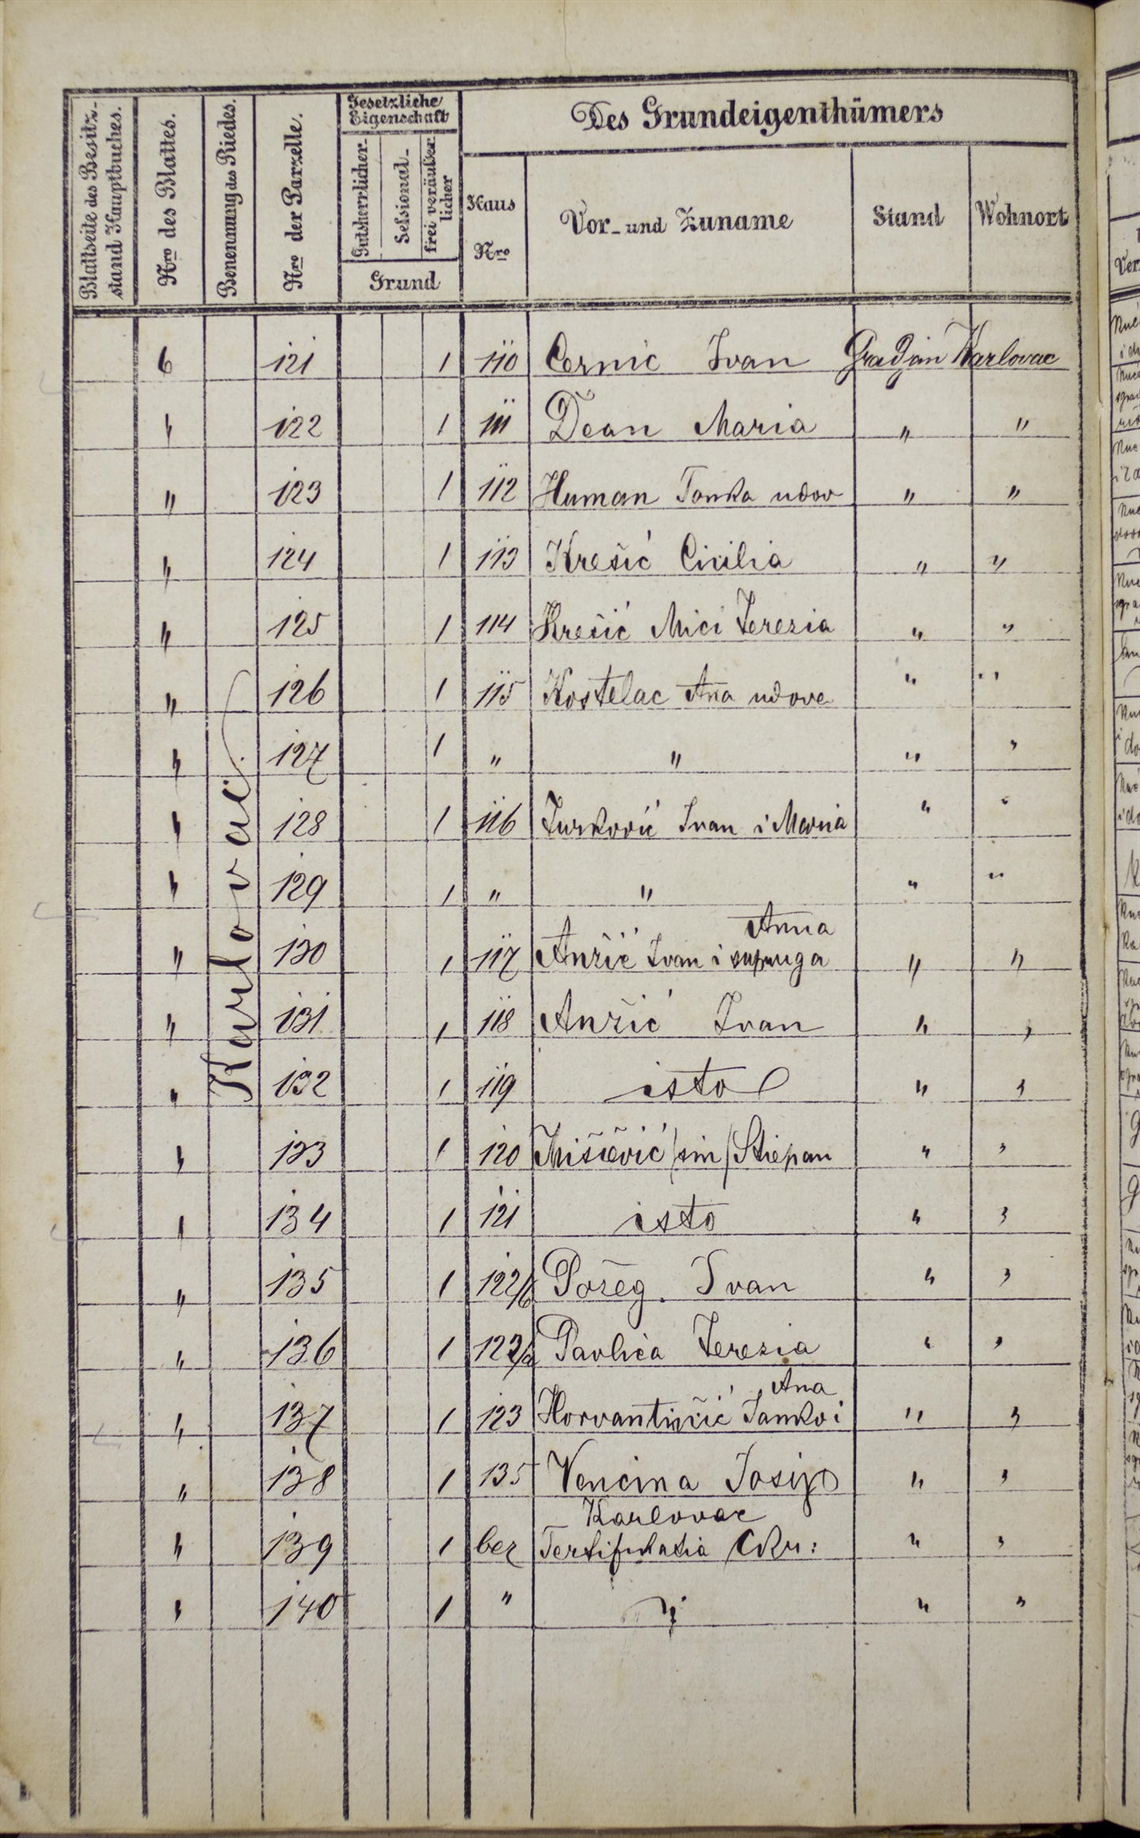 Des Grundeigenthümers
Gesetzliche Eigenschaft
Blattseite des Besitz-stand Hauptbuches.
Nro des Blattes.
Benennung des Riedes.
Nro der Parzelle.
Gutsherrlicher-
Sessional-
frei veräußerlicher
Grund
Haus Nro
Vor- und Zuname
Stand
Wohnort
Karlovac.
6 121 1 110 Cernić Ivan Gradjan Karlovac
" 122 1 111 Dean Maria " "
" 123 1 112 Human Janka udov " "
" 124 1 113 Krešić Cicilia " "
" 125 1 114 Krešić Mici Terezia " "
" 126 1 115 Kostelac Ana udove " "
" 127 1 " " " "
" 128 1 116 Jurković Ivan i Maria " "
" 129 1 " " " "
Anna
" 130 1 117 Anžić Ivan i supruga " "
" 131 1 118 Anžić Ivan " "
" 132 1 119 isto " "
" 133 1 120 /sin/ Stiepan " "
" 134 1 121 isto " "
" 135 1 122/b Požeg. Ivan " "
" 136 1 122/a Pavlića Terezia " "
Ana
" 137 1 123 Janko i " "
" 138 1 135 Vencina Josip " "
Karlovac
" 139 1 bez " "
" 140 1 " " " "